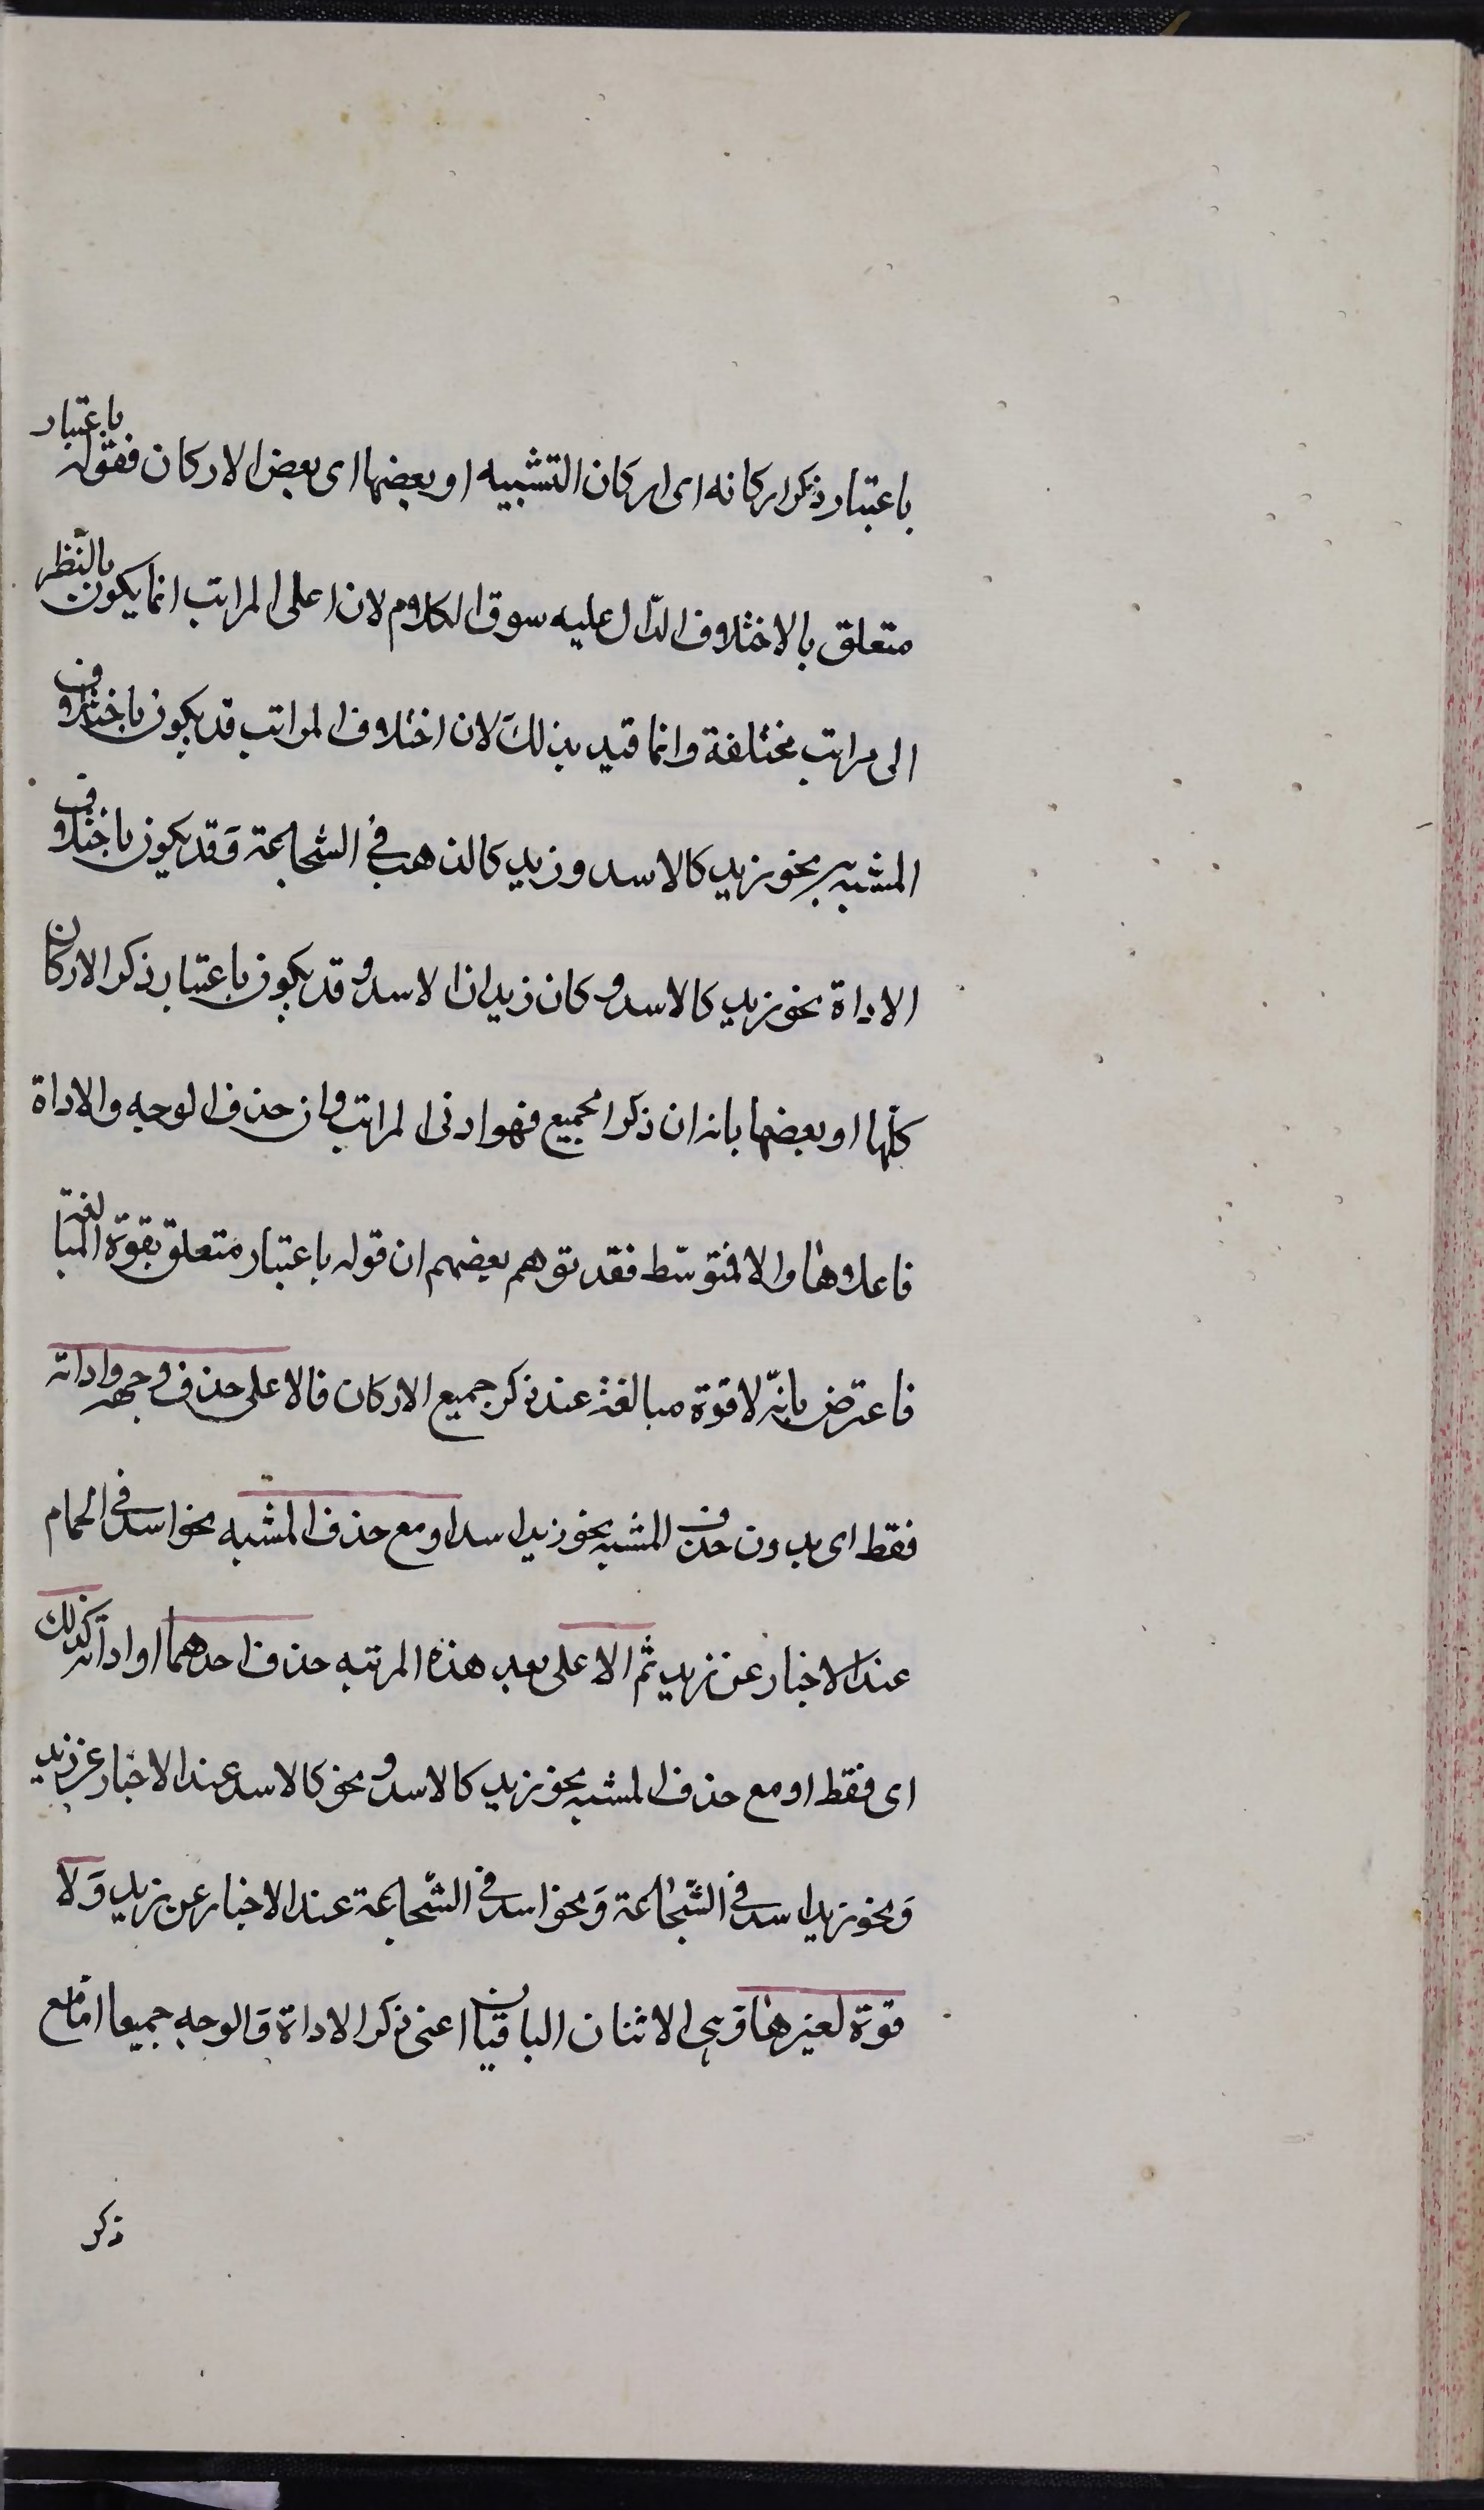 باعتبار ذكر اركانه اى اركان التشبيه او بعضها اى بعض الاركان فقوله باعتبار
متعلق بالاختلاف الدّال عليه سوق الكلام لان اعلى المراتب انما يكون بالنّظر
الى مراتب مختلفة وانما قيد بذلك لان اختلاف المراتب قد يكون باختلاف
المشبه به نحو زيد كالاسد وزيد كالذهب فى الشجاعة وَقد يكون باختلاف
الاداة نحو زيد كالاسد و كان زيدا الاسد و قد يكون باعتبار ذكر الاركان
كلّها او بعضها بانه ان ذكر الجميع فهو ادنى المراتب وان حذف الوجه والاداة
فاعلاها والا فمتوسّط فقد توهم بعضهم ان قوله باعتبار متعلق بقوّة المبالغة
فاعترض بانّه لا قوّة مبالغة عند ذكر جميع الاركان فالاعلى حذف وجهه واداته
فقط اى بدون حذف المشبه نحو زيد اسد او مع حذف المشبه نحو اسد فى الحمام
عند الاخبار عن زيد ثم الاعلى بعد هذه المرتبه حذف احدهما او اداته كذلك
اى فقط او مع حذف المشبه نحو زيد كالاسد و نحو كالاسد عند الاخبار عن زيد
وَنحو زيد اسد فى الشّجاعة وَنحو اسد فى الشّجاعة عند الاخبار عن زيد وَلا
قوّة لغيرهما وهى الاثنان الباقيان اعنى ذكر الاداة وَالوجه جميعا امّا مع
ذكر